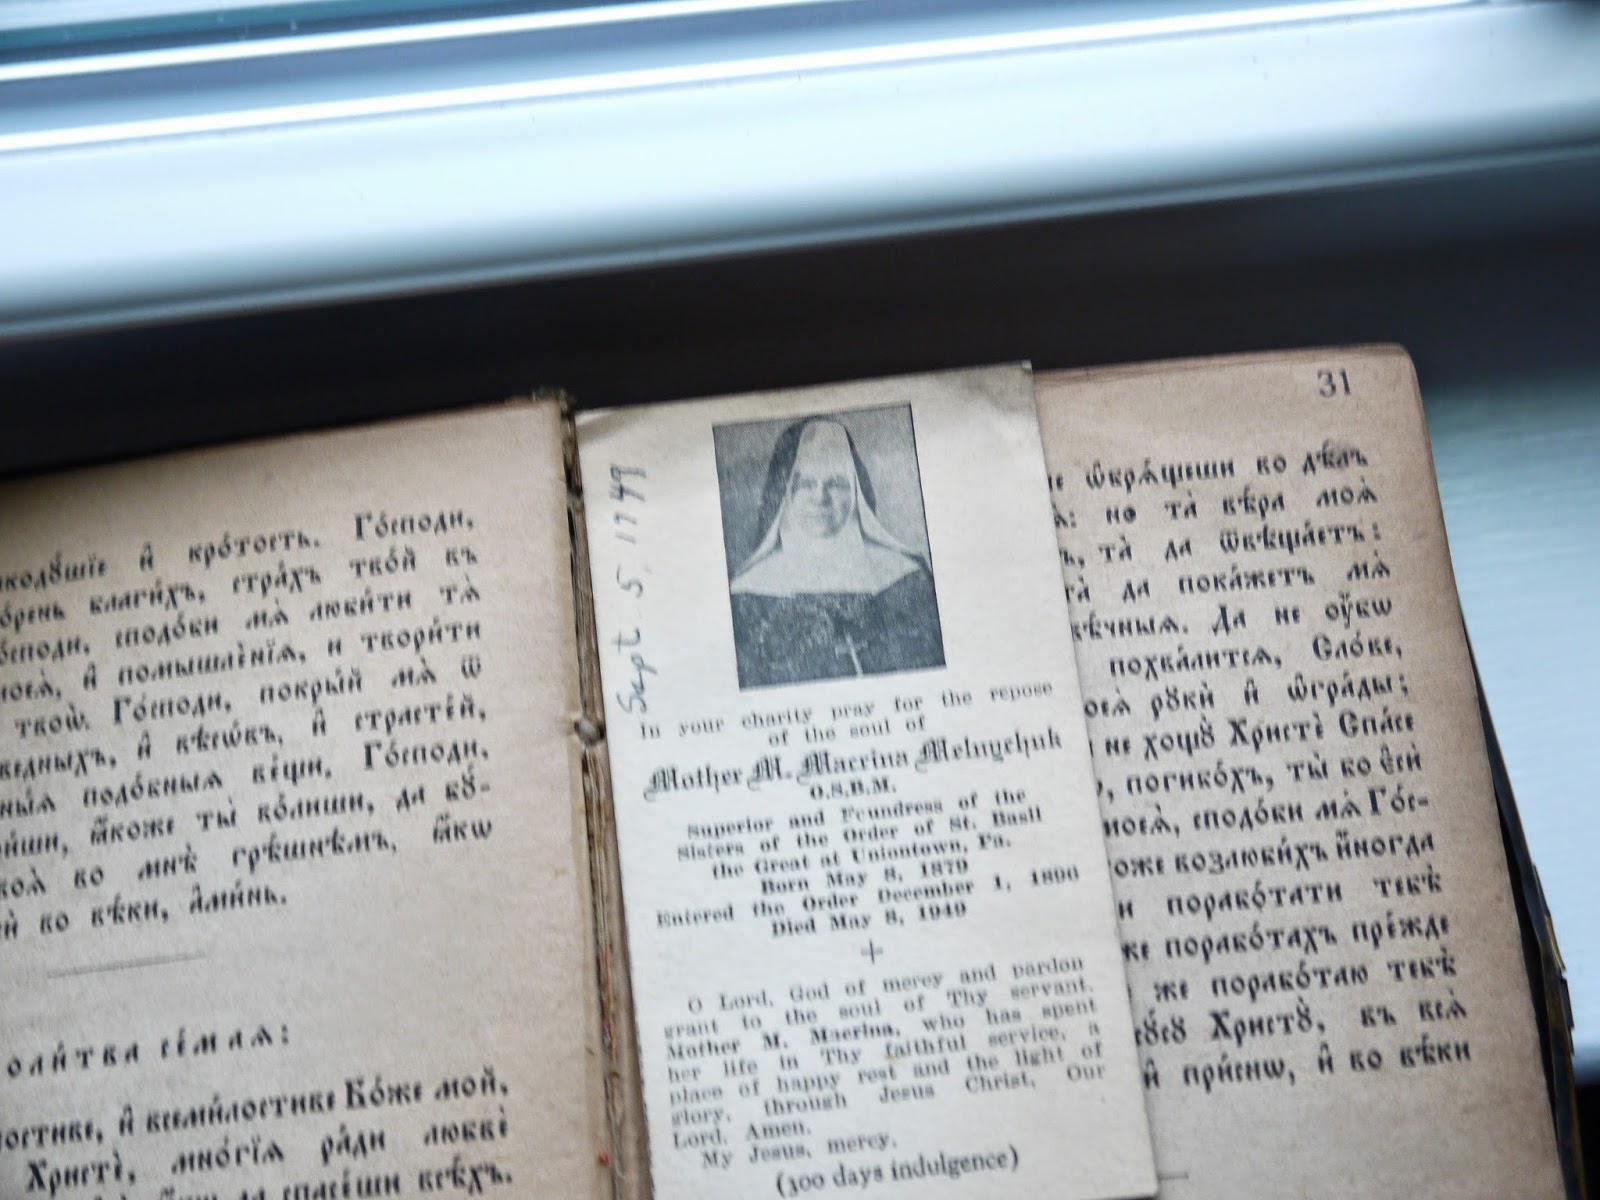 кѡдꙋ́шїе и҆ кро́тость. Го́споди,
благи́хъ, стра́хъ тво́й въ
сподо́би мѧ̀ люби́ти тѧ̀
и҆ помышлє́нїѧ, и твори́ти
твою̀. Го́споди, покры́й мѧ̀ ѿ
и҆ бѣсѡ́въ, и҆ страсте́й,
подо́бныѧ ве́щи. Го́споди,
ꙗ҆́коже ты̀ во́лиши, да бꙋ́-
во мнѣ̀ грѣ́шнѣмъ, ꙗ҆́кѡ
во вѣ́ки, а҆ми́нь.
оли́тва се́дмаѧ:
и҆ всеми́лостиве Бо́же мой,
Христѐ, мно́гїѧ ра́ди любвѐ
да спасе́ши всѣ́хъ.
Sept. 5, 1949
In your charity pray for the repose
of the soul of
Mother M. Macrina Melnychuk
O.S.B.M.
Superior and Foundress of the
Sisters of the Order of St. Basil
the Great at Uniontown, Pa.
Born May 8, 1879
Entered the Order December 1, 1896
Died May 8, 1949
+
O Lord, God of mercy and pardon
grant to the soul of Thy servant,
Mother M. Macrina, who has spent
her life in Thy faithful service, a
place of happy rest and the light of
glory, through Jesus Christ, Our
Lord. Amen.
My Jesus, mercy.
(300 days indulgence)
31
ѡ҆брѧ́щеши во дѣ́лъ
но та̀ вѣ́ра моѧ̀
та̀ да ѿвѣща́етъ:
да пока́жетъ мѧ̀
вѣ́чныѧ. Да не ᲂу҆́бѡ
похва́литсѧ, Сло́ве,
рꙋкѝ и҆ ѡ҆гра́ды;
не хощꙋ̀ Христѐ Спа́се
погибо́хъ, ты̀ бо є҆сѝ
моеѧ̀, сподо́би мѧ̀ Го́с-
оже возлюби́хъ и҆ногда
и порабо́тати тебѣ̀
же порабо́тахъ пре́жде
же порабо́таю тебѣ̀
Христꙋ̀, въ всѧ̀
и҆ при́снѡ, и҆ во вѣ́ки